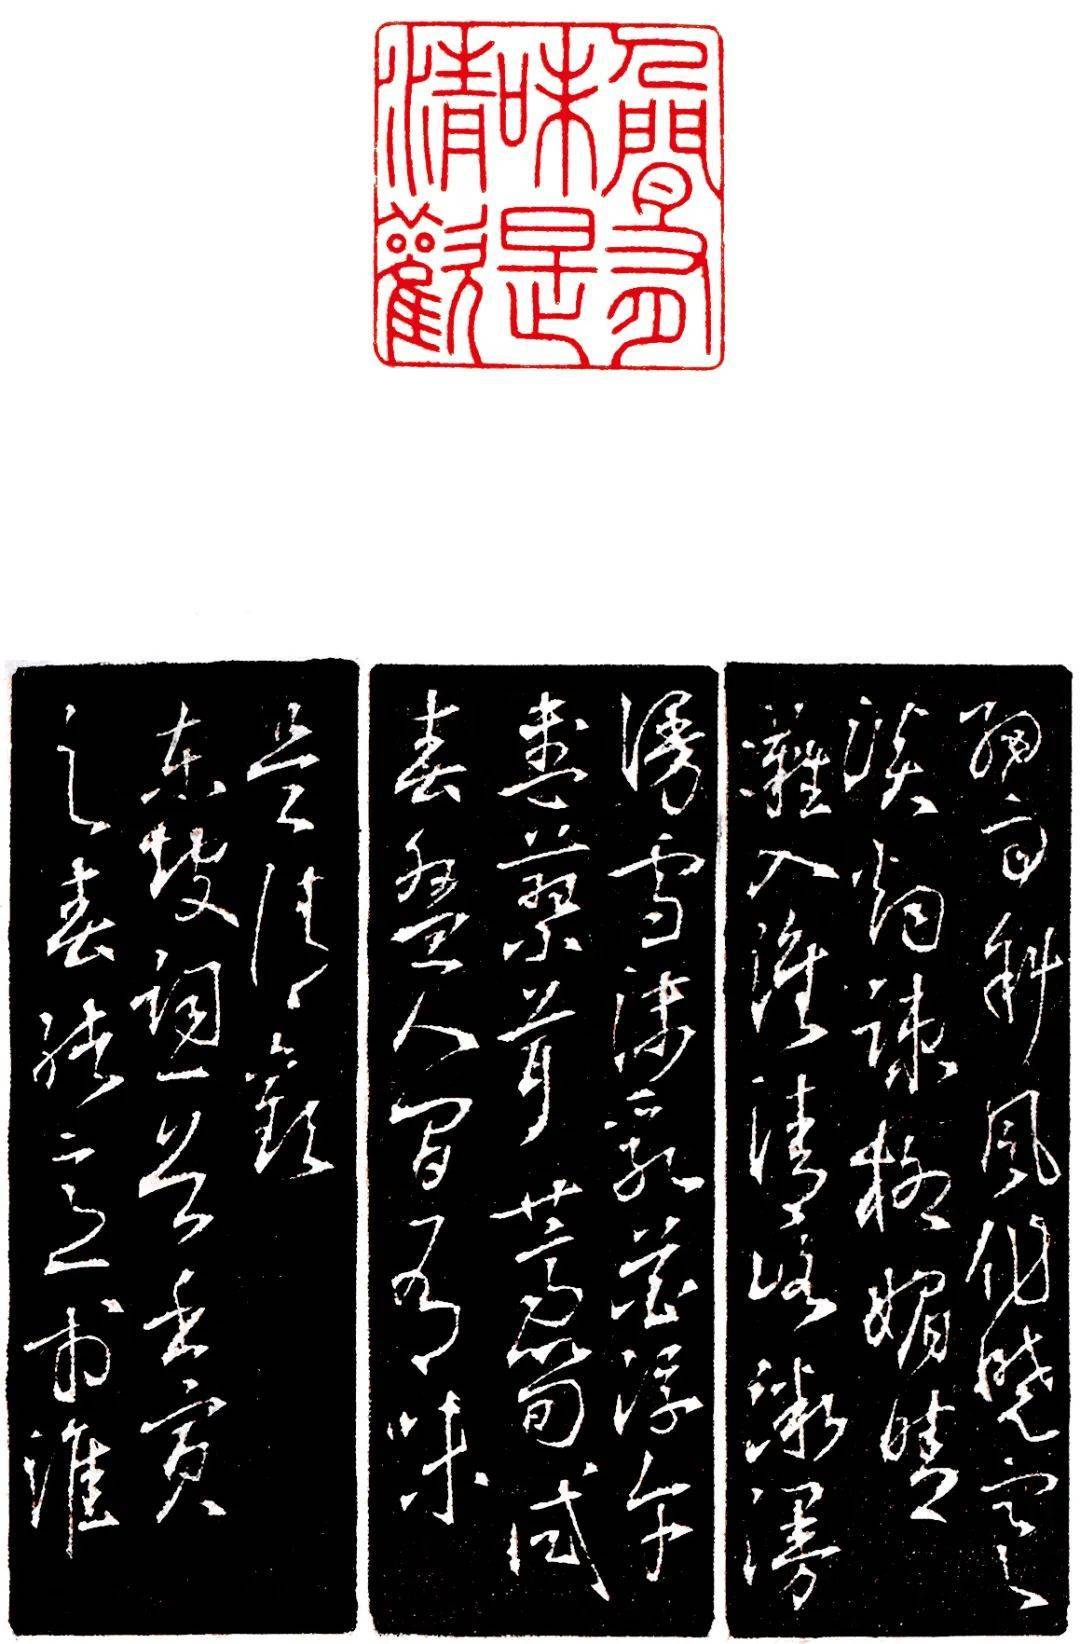 人間有
味是
清歡
細雨斜風作曉寒
淡烟疎柳媚晴
灘入淮清洛漸漫
漫雪沫乳花浮午
盞蓼茸蒿筍試
春盤人間有味
是清歡
東坡詞一首壬寅
之春